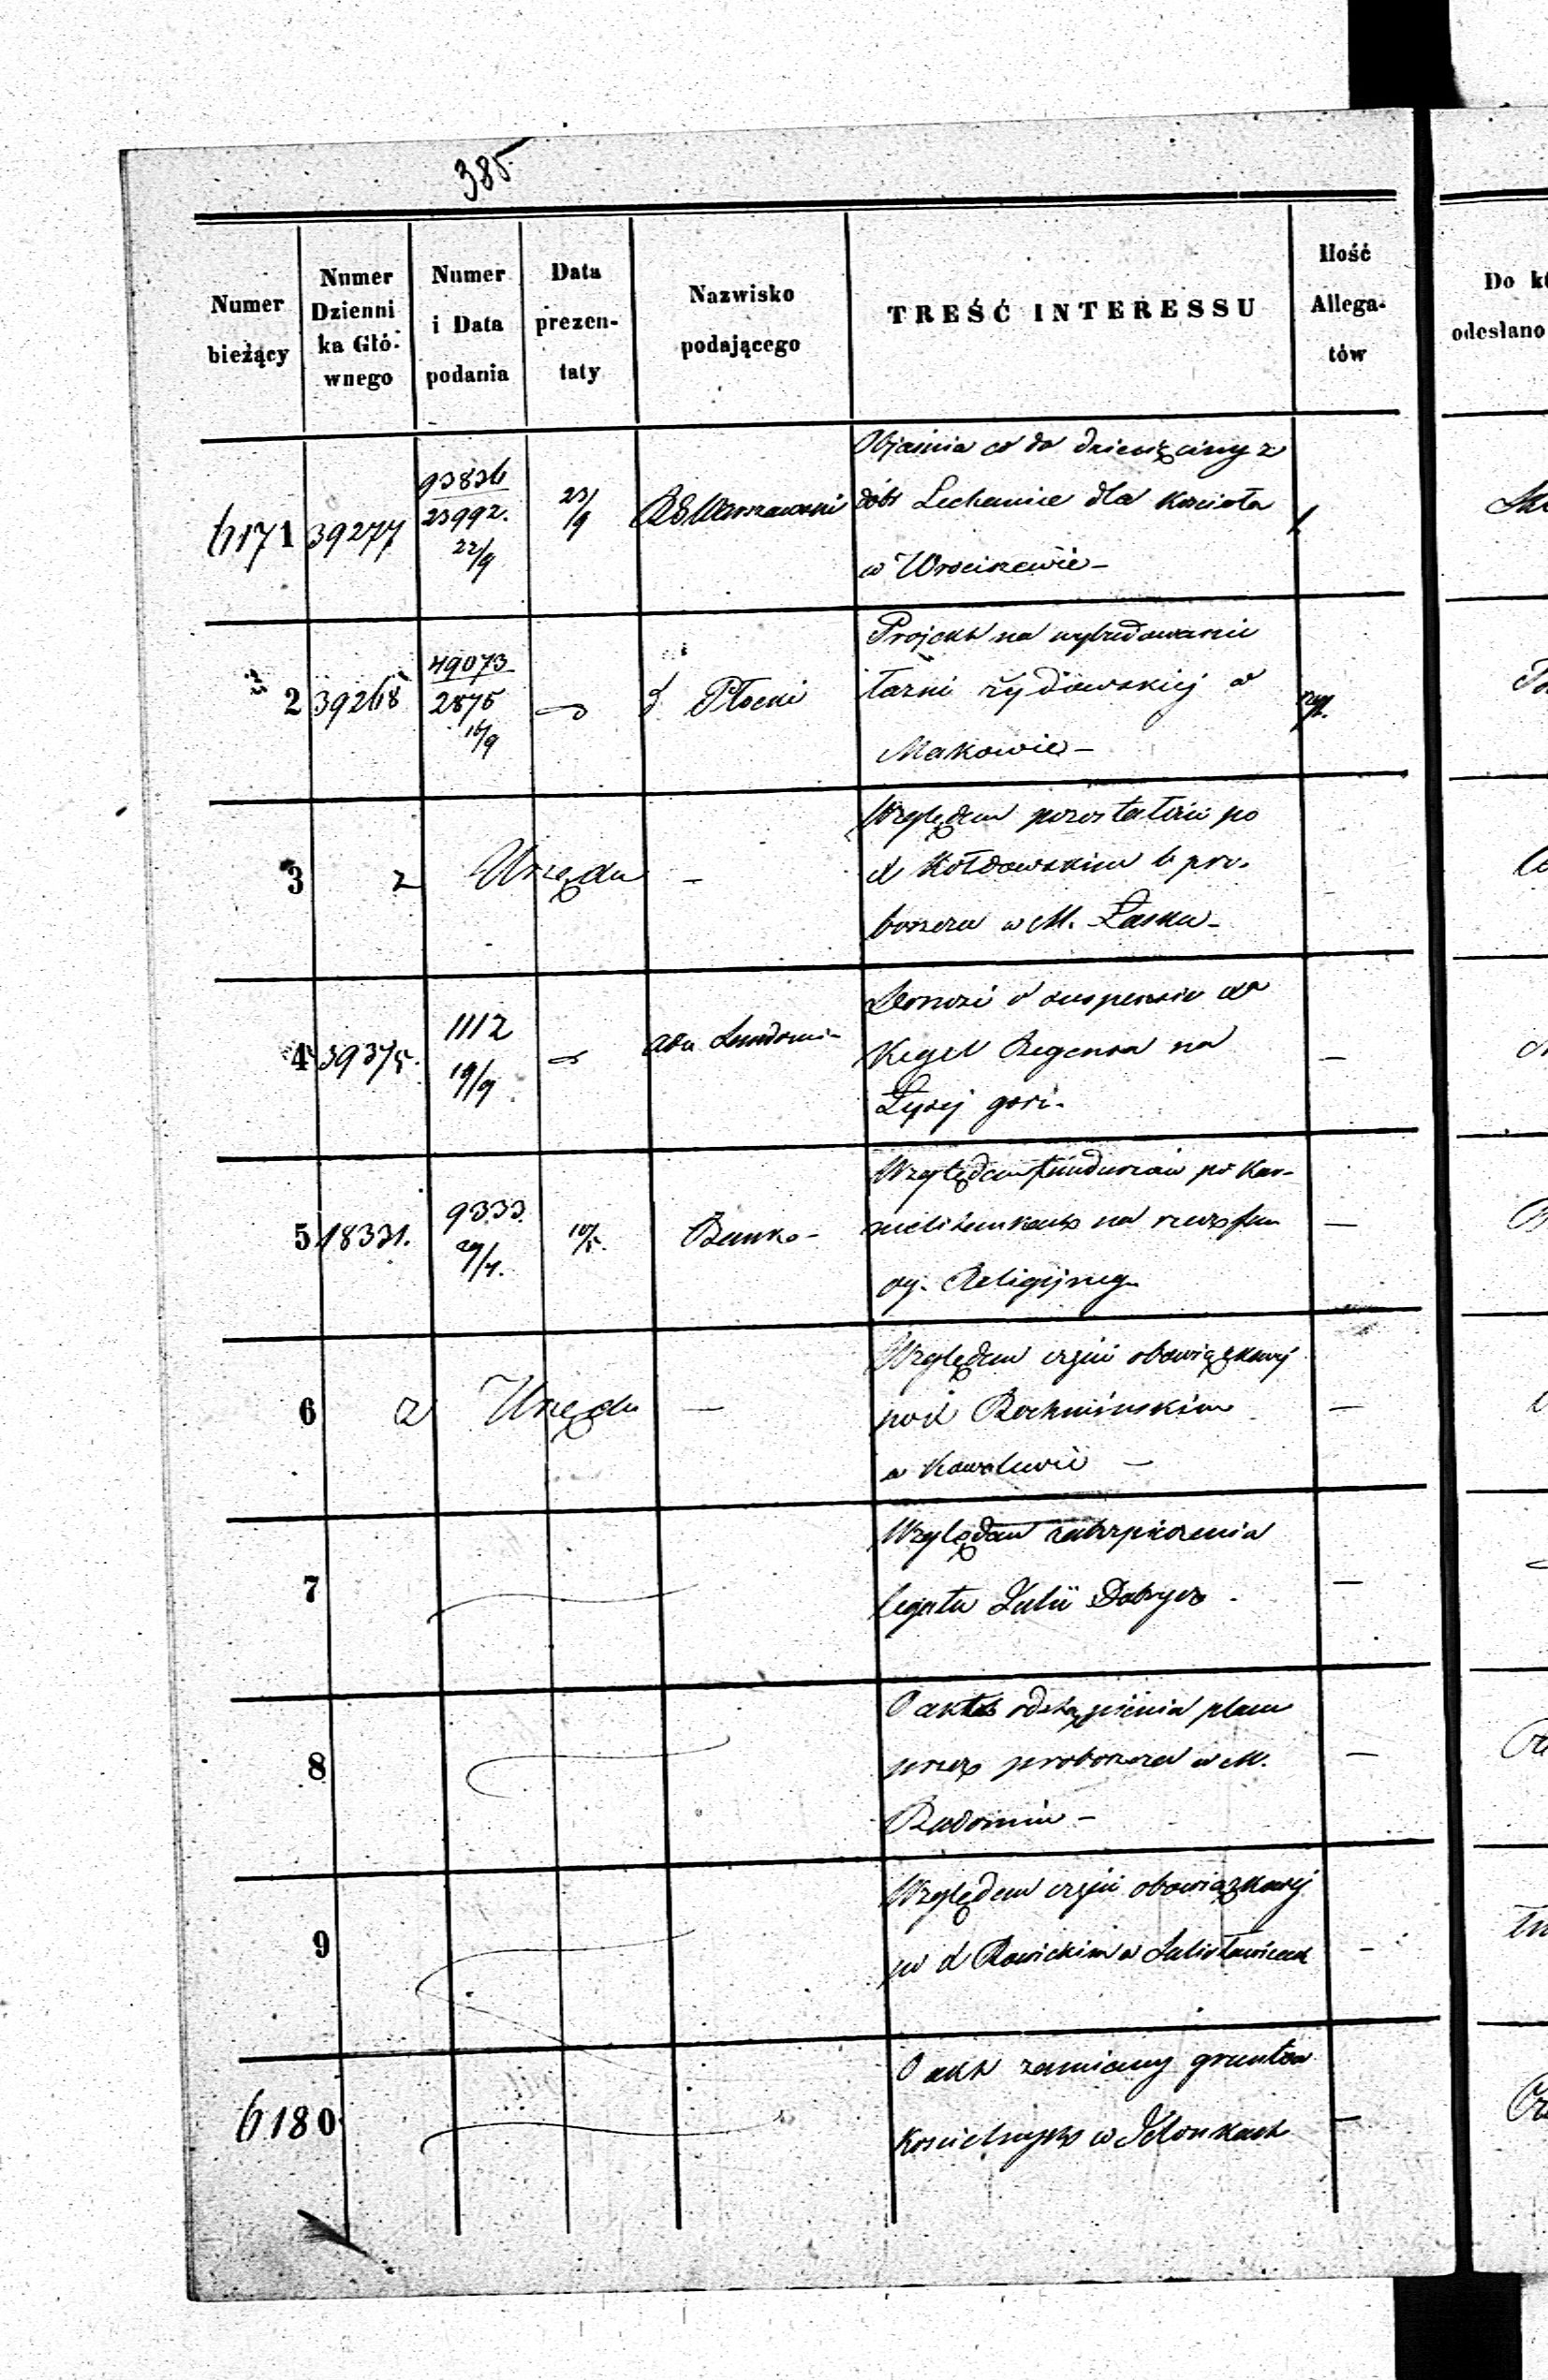 385
Numer bieżący
Numer Dzienni ka Głó- wnego
Numer i Data podania
Data prezen- taty
Nazwisko podającego
TREŚĆ INTERESSU
Ilość Allega- tów
Do
odesłano
6171 39277 93836 23992. 22/9 23/9 Warszawski
Objaśnia co do dziesięciny z
dóbr Lechanice dla Kościoła
w Wrociszewie -
2 39268 49073 2875 16/9 Płocki
Projekt na wybudowanie
łaźni żydowskiej w
Makowie -
3 z Urzędu -
Względem pozostałości po
X Kołdowskim b. pro-
boszczu w M. Łasku -
4 39375. 1112 19/9
Donosi o suspensie
Kegel Regensa na
Łysej gorze -
5 18331. 9333. 29/4. 10/5. Banko -
Względem funduszów po Kar-
melitankach na rzecz fun
og. Religijnego
6 z Urzędu -
Względem czyn: obowiązkowej
po X Rochmińskim
w Kowalewie -
7
Względem zabezpieczenia
legatu Julii Dobrycz -
8
O akt odstąpienia placu
przez proboszcza w M.
Radominie -
9
Względem czyn: obowiązkowej
po X Rawickim w
6180
O akt zamiany gruntów
Kościelnych w Jelonkach